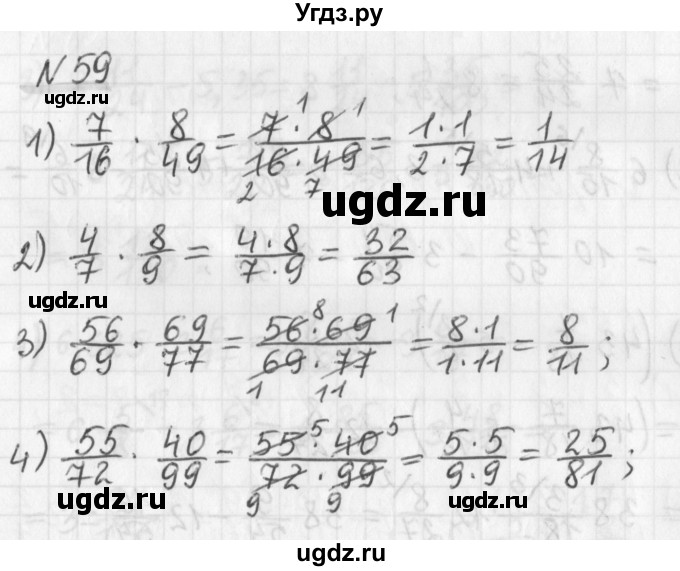 Угдз.ру
№ 59
ugdz.ru
1) 7/16 · 8/49 = 7·8/16·49 = 1·1/2·7 = 1/14
1 1
2 7
ugdz.ru
2) 4/7 · 8/9 = 4·8/7·9 = 32/63
ugdz.ru
ugdz.ru
3) 56/69 · 69/77 = 56·69/69·77 = 8·1/1·11 = 8/11;
8 1
1 11
4) 55/72 · 40/99 = 55·40/72·99 = 5·5/9·9 = 25/81;
5 5
9 9
ugdz.ru
ugdz.ru
ugdz.ru
ugdz.ru